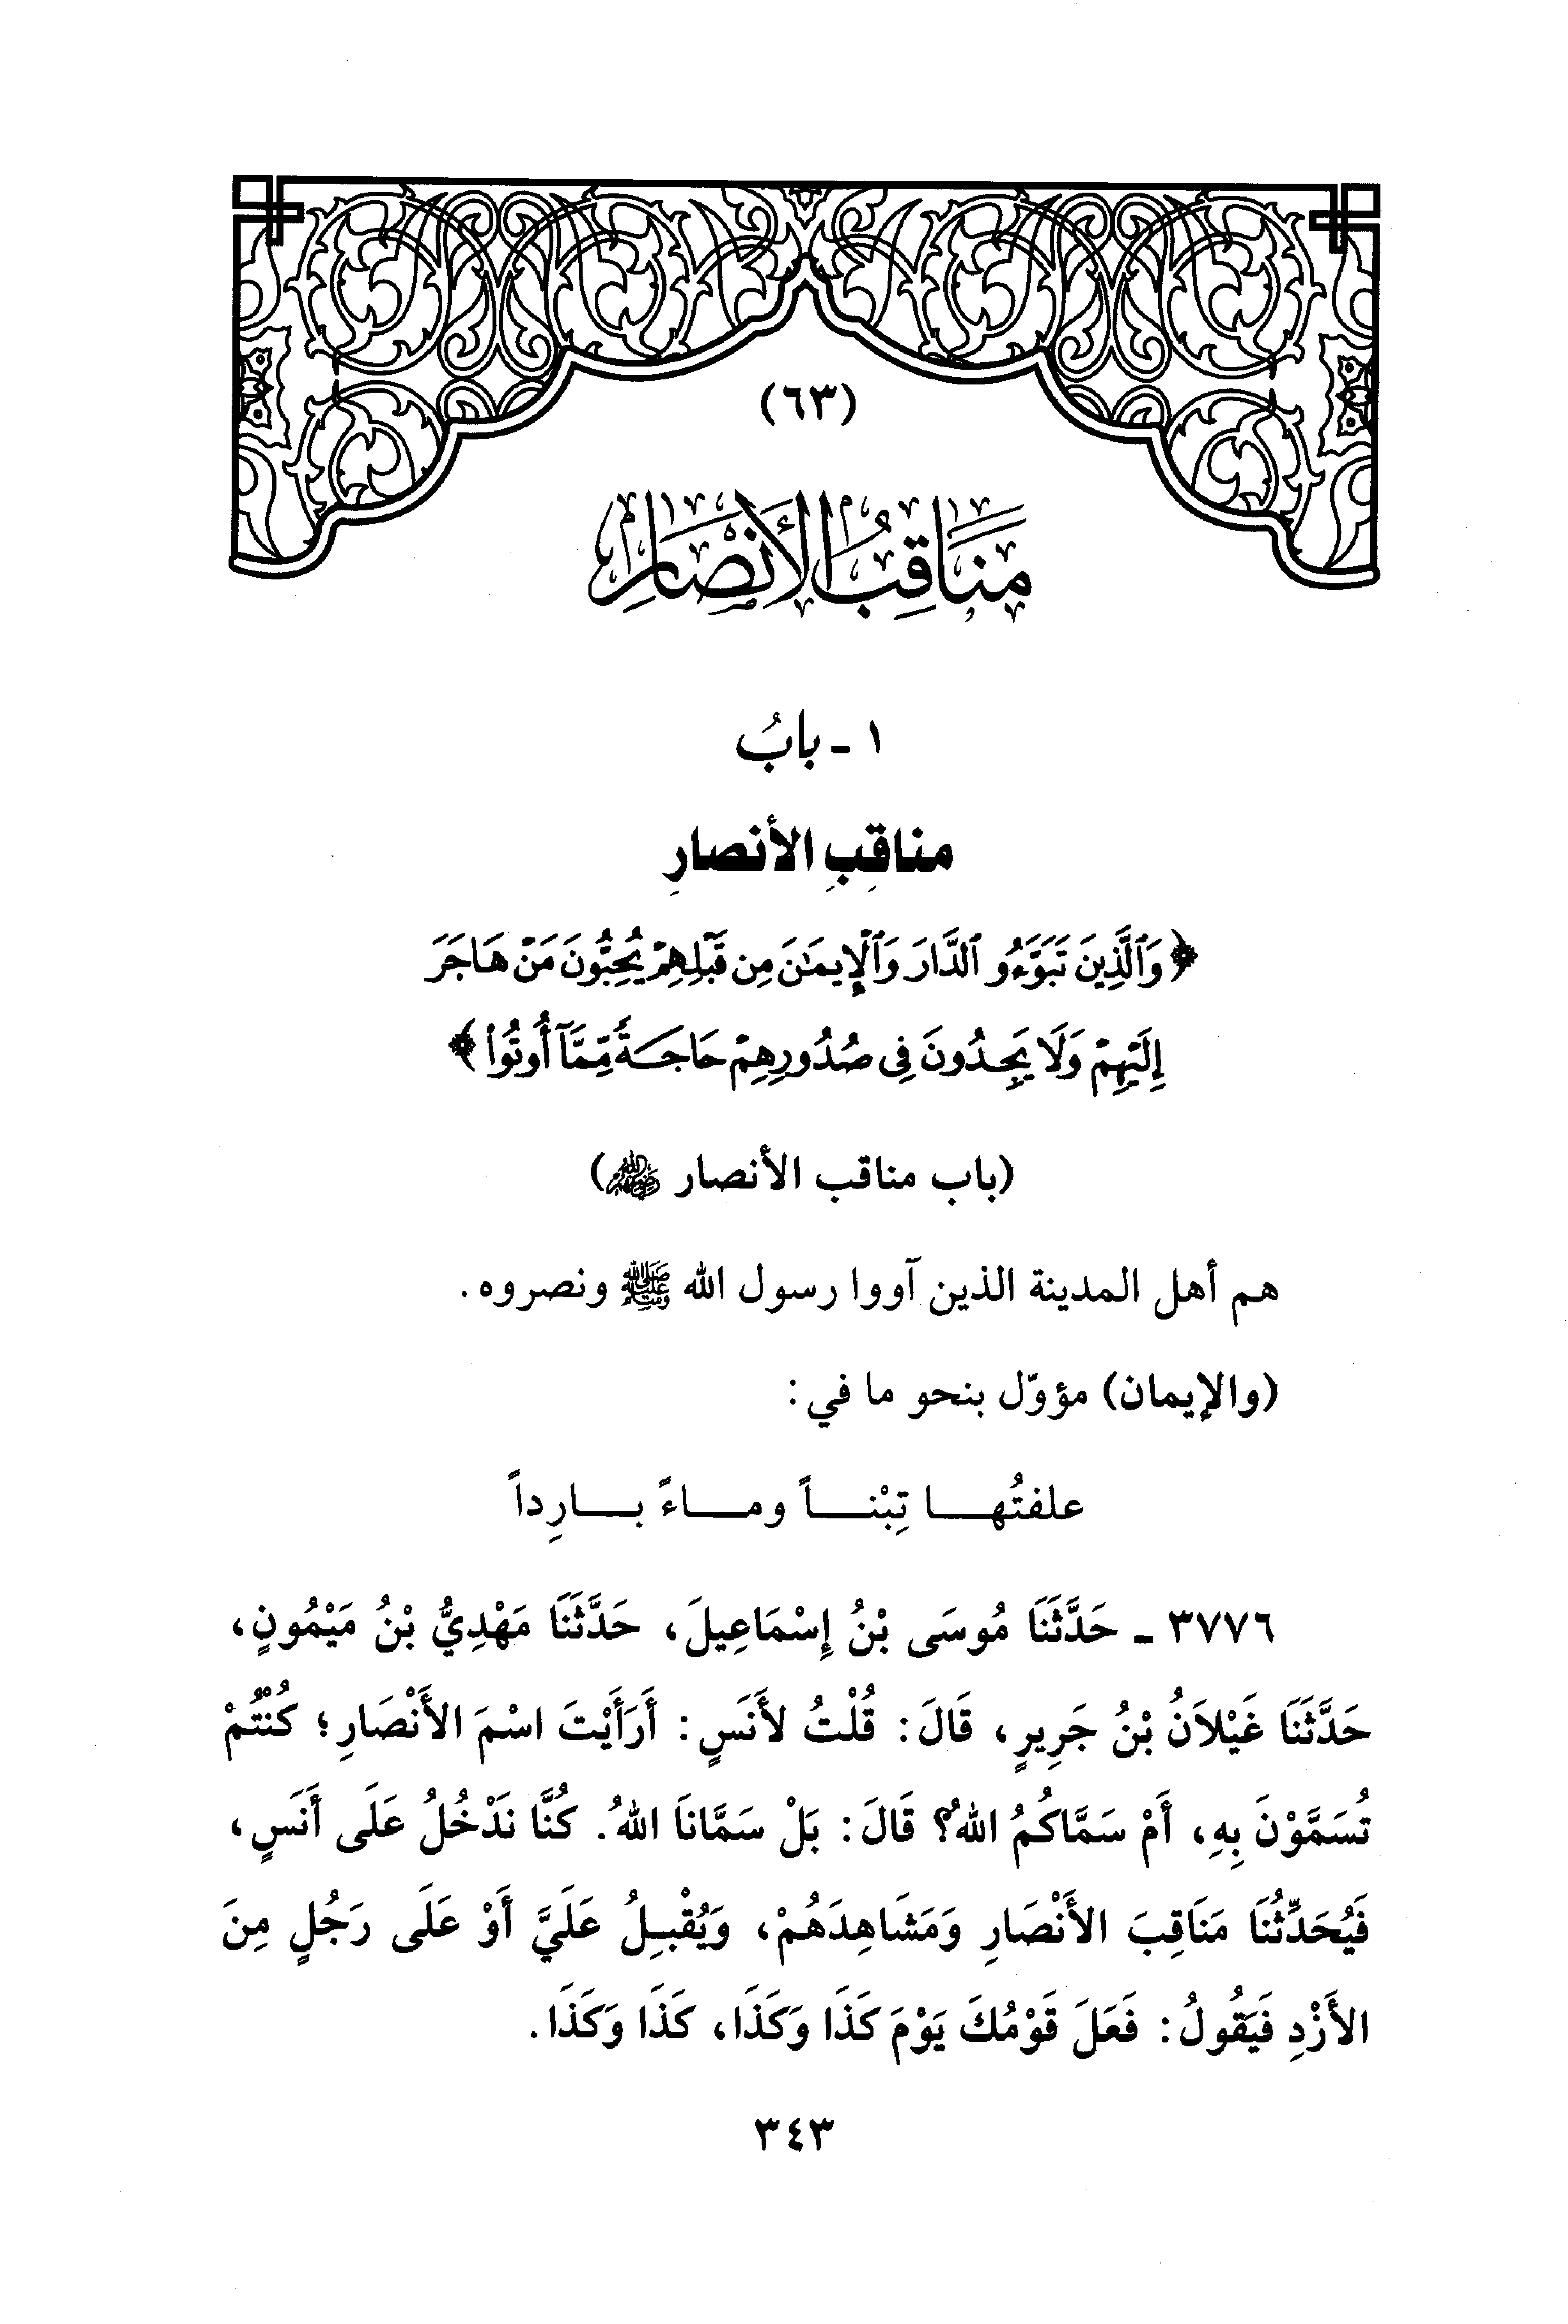 (٦٣)
مَنَاقِبُ الأَنْصَارِ
١ - بابُ
مناقبِ الأنصارِ
﴿وَٱلَّذِينَ تَبَوَّءُو ٱلدَّارَ وَٱلْإِيمَٰنَ مِن قَبْلِهِمْ يُحِبُّونَ مَنْ هَاجَرَ
إِلَيْهِمْ وَلَا يَجِدُونَ فِى صُدُورِهِمْ حَاجَةً مِّمَّآ أُوتُوا۟﴾
(باب مناقب الأنصار ﵃)
هم أهل المدينة الذين آووا رسول الله ﷺ ونصروه.
(والإيمان) مؤوّل بنحو ما في:
علفتُهـــا تِبْنـــاً ومـــاءً بـــارِداً
٣٧٧٦ - حَدَّثَنَا مُوسَى بْنُ إِسْمَاعِيلَ، حَدَّثَنَا مَهْدِيُّ بْنُ مَيْمُونٍ،
حَدَّثَنَا غَيْلاَنُ بْنُ جَرِيرٍ، قَالَ: قُلْتُ لأَنَسٍ: أَرَأَيْتَ اسْمَ الأَنْصَارِ؛ كُنْتُمْ
تُسَمَّوْنَ بِهِ، أَمْ سَمَّاكُمُ اللهُ؟ قَالَ: بَلْ سَمَّانَا اللهُ. كُنَّا نَدْخُلُ عَلَى أَنَسٍ،
فَيُحَدِّثُنَا مَنَاقِبَ الأَنْصَارِ وَمَشَاهِدَهُمْ، وَيُقْبِلُ عَلَيَّ أَوْ عَلَى رَجُلٍ مِنَ
الأَزْدِ فَيَقُولُ: فَعَلَ قَوْمُكَ يَوْمَ كَذَا وَكَذَا، كَذَا وَكَذَا.
٣٤٣